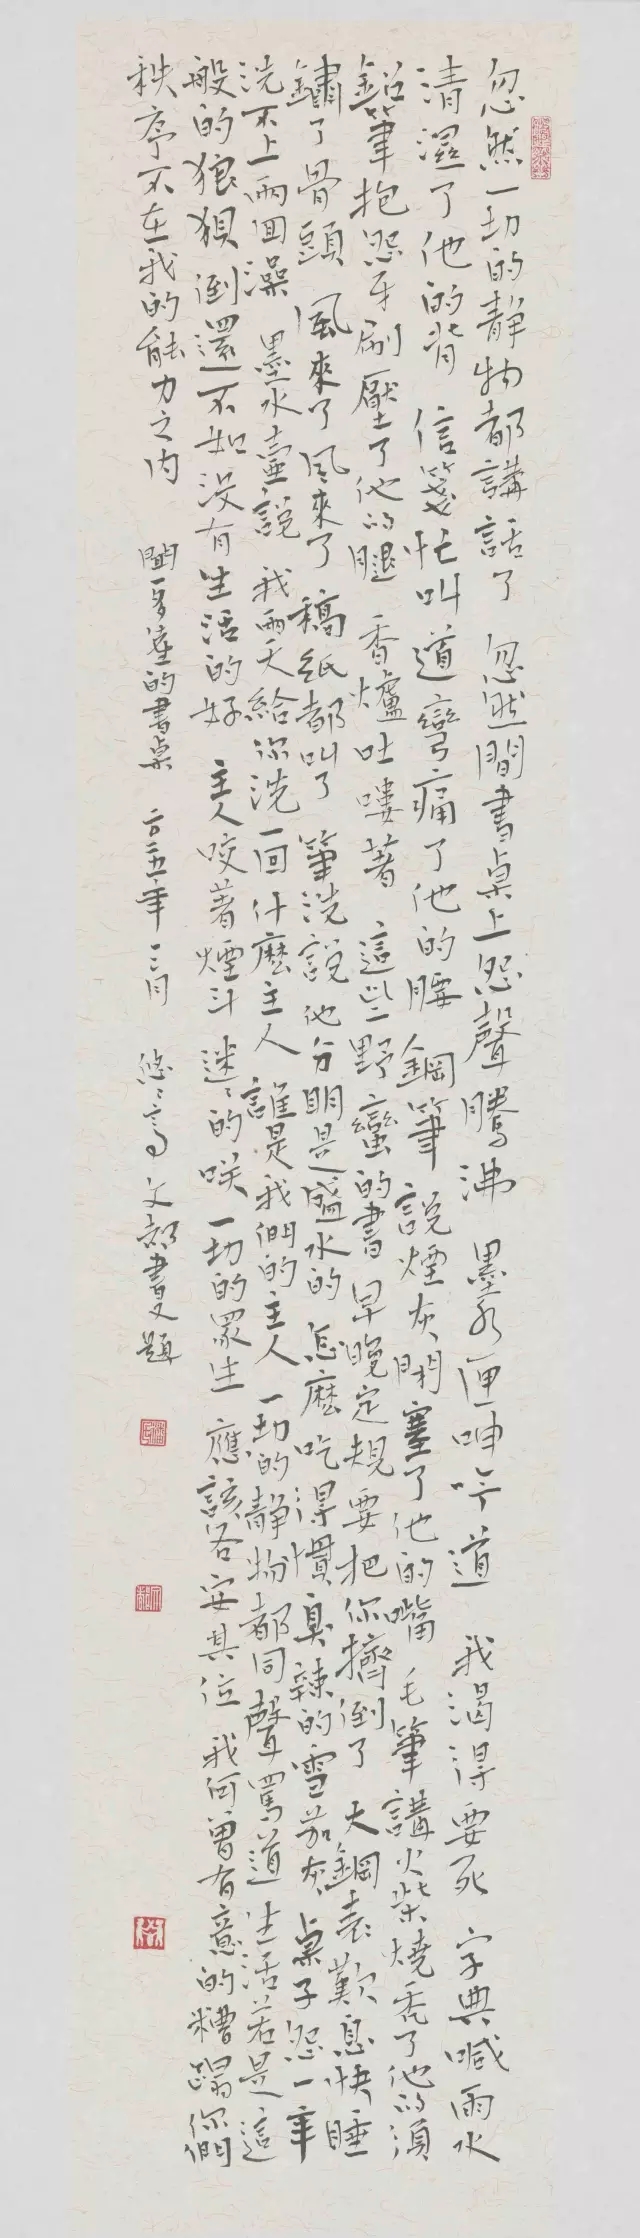 忽然一切的静物都講話了 忽然間書桌上怨聲騰沸 墨水匣呻吟道 我渴得要死 字典喊雨水
清濕了他的背 信箋忙叫道彎痛了他的腰 鋼筆說煙灰閉塞了他的嘴 毛筆講火柴燒禿了他的須
鉛筆抱怨牙刷壓了他的腿 香爐吐嘍著 這些野蠻的書早晚定規要把你擠倒了 大鋼表歎息快睡
鏽了骨頭 風來了風來了 稿紙都叫了 筆洗說他分明是盛水的 怎麼吃得慣臭辣的雪茄灰 桌子怨一年
洗不上兩回澡 墨水壺說 我兩天給你洗一回什麼主人 誰是我們的主人 一切的静物都同聲罵道 生活若是這
般的狼狽倒還不如没有生活的好 主人咬著煙斗迷迷的咲 一切的眾生 應該各安其位 我何曾有意的糟蹋你們
秩序不在我的能力之内 聞一多先生的書桌 二〇一五年三月